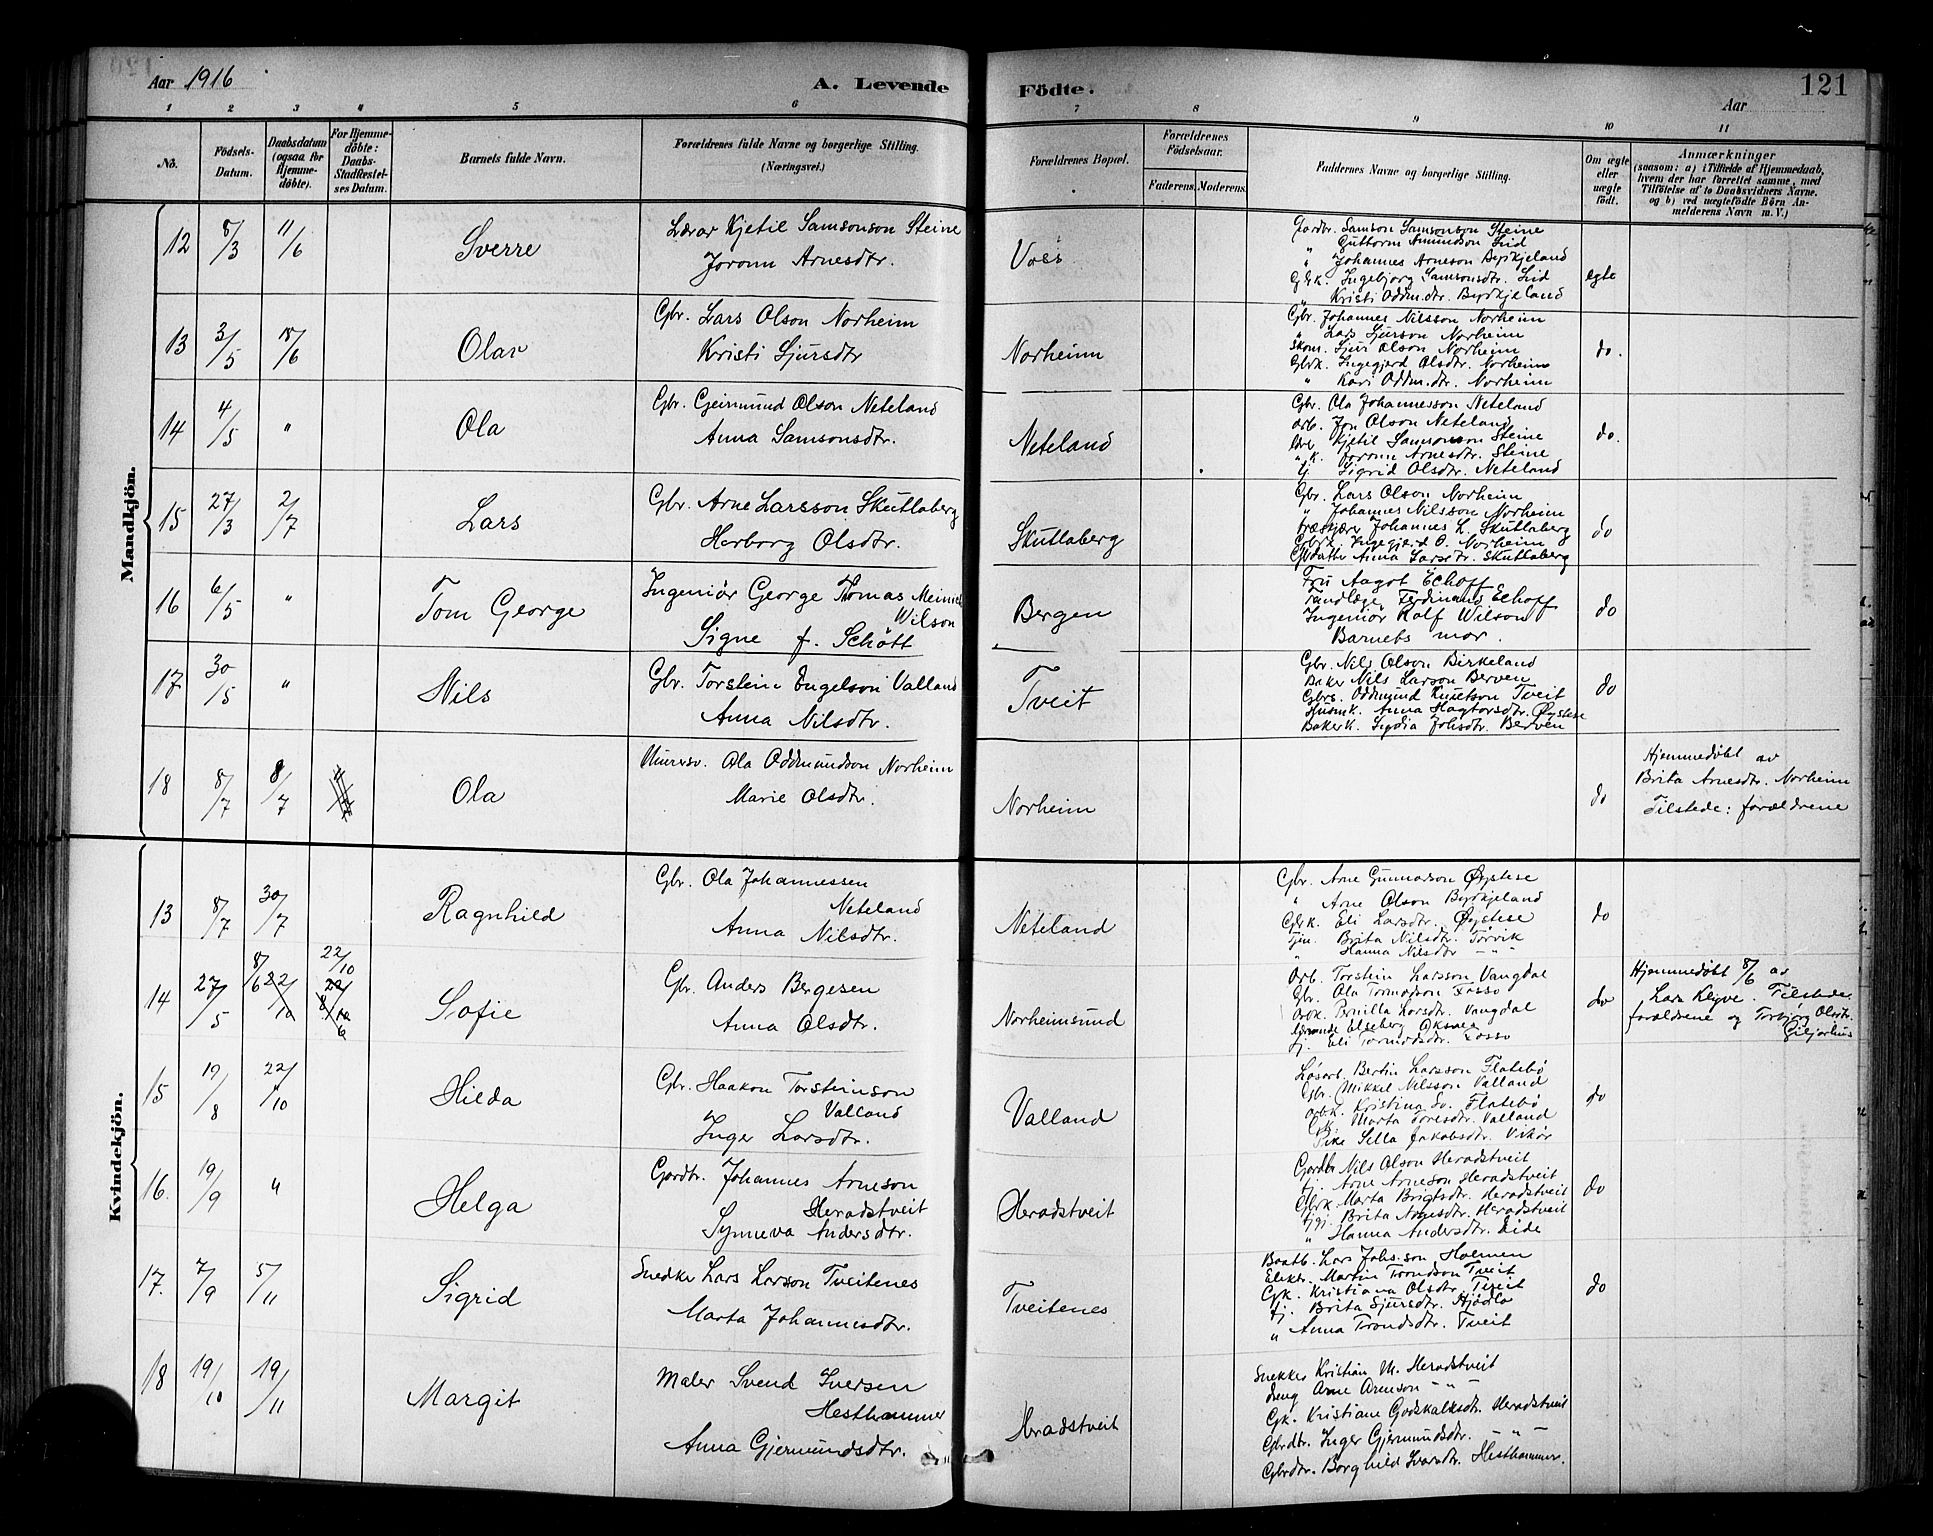 Aar 1916
A. Levende
Födte.
121
Aar
1 2 3 4 5 6 7 8 9 10 11
No.
Födsels-Datum.
Daabsdatum (ogsaa for Hjemme-döbte).
For Hjemme-döbte: Daabs-Stadfestel-ses Datum.
Barnets fulde Navn.
Forældrenes fulde Navne og borgerlige Stilling. (Næringsvei.)
Forældrenes Bopæl.
Forældrenes Födselsaar.
Faderens. Moderens.
Faddernes Navne og borgerlige Stilling.
Om ægte eller uægte födt.
Anmærkninger
(saasom: a) i Tilfælde af Hjemmedaab, hvem der har forrettet samme, med Tilföielse af to Daabsvidners Navne. og b) ved uægtefödte Börn An-melderens Navn m. V.)
Mandkjön.
12 8/3 11/6 Sverre
Lærar Kjetil Samsonson Steine
Joronn Arnesdtr.
Voss
Gardbr. Samson Samsonson Steine
" Guttorm Amundson Lid
" Johannes Arneson Byrkjeland
Gbrk. Ingebjorg Samsonsdtr. Lid
" Kristi Oddm.dtr. Byrkjeland
egte
13 3/5 18/6 Olav
Gbr. Lars Olson Norheim
Kristi Sjursdtr
Norheim
Gbr. Johannes Nilsson Norheim
" Lars Sjurson Norheim
Skom. Sjur Olson Norheim
Gbrk. Ingegjerd Olsdtr. Norheim
" Kari Oddm.dtr. Norheim
do.
14 4/5 " Ola
Gbr. Geirmund Olson Neteland
Anna Samsonsdtr.
Neteland
Gbr. Ola Johannesson Neteland
Arb. Jon Olson Neteland
Kjetil Samsonson Steine
" k. Joronn Arnesdtr. Steine
tj. Sigrid Olsdtr. Neteland
do.
15 27/3 2/7 Lars
Gbr. Arne Larsson Skutlaberg
Herborg Olsdtr.
Skutlaberg
Gbr. Lars Olson Norheim
" Johannes Nilsson Norheim
Træskjærer Johannes L. Skutlaberg
Gbrk. Ingegjerd O. Norheim
Gbdatter Anna Larsdtr. Skutlaberg
do
16 6/5 " Tom George
Ingeniör George Thomas Meinich
Wilson
Signe f. Schött
Bergen
Fru Aagot Echoff
Tandlæge Ferdinand Echoff
Ingeniör Rolf Wilson
Barnets mor.
do
17 30/5 " Nils
Gbr. Torstein Engelson Valland
Anna Nilsdtr.
Tveit
Gbr. Nils Olson Birkeland
Baker Nils Larson Berven
Gbrs. Oddmund Knutson Tveit
Husmk. Anna Hagtorsdtr. Øystese
Bakerk. Lydia Johsdtr. Berven
do
18 8/7 8/7 Ola
Murersv. Ola Oddmundson Norheim
Marie Olsdtr.
Norheim
do
Hjemmedøbt av
Brita Arnesdtr. Norheim
Tilstede: forældrene
Kvindekjön.
13 8/7 30/7 Ragnhild
Gbr. Ola Johannessen
Neteland
Anna Nilsdtr.
Neteland
Gbr. Arne Gunnarson Øystese
" Arne Olson Byrkjeland
Gbrk. Eli Larsdtr. Øystese
Tjen. Brita Nilsdtr. Torvik
" Hanna Nilsdtr – " –
do
14 27/5 8/6 22/10 22/10 Sofie
Gbr. Anders Bergesen
Anna Olsdtr.
Norheimsund
Arb. Torstein Larsson Vangdal
Gbr. Ola Tormodson Fosso
Arbk. Bruilla Larsdtr. Vangdal
Elseberg Oksnes
tj. Eli Tormodsdtr. Fosso
do
Hjemmedøbt 8/6 av
Lars Kleyve. Tilstede
forældrene og Torbjørg Olsdtr.
Giljarhus
15 19/8 22/10 Hilda
Gbr. Haakon Torsteinson
Valland
Inger Larsdtr.
Valland
Løsarb. Bertin Larsson Flatebø
Gbr. Mikkel Nilsson Valland
Arbk. Kristina Sv. Flatebø
Gk. Marta Toresdtr. Valland
Pike Sella Jakobsdtr. Vikør
do
16. 19/9 " Helga
Gardbr. Johannes Arneson
Heradstveit
Synneva Andersdtr.
Heradstveit
Gardbr Nils Olson Heradstveit
tj. Arne Arneson Heradstveit
Gbrk. Marta Brigtsdtr. Heradstveit
tjgj. Brita Arnesdtr. Heradstveit
" Hanna Andersdtr. Eide
do
17. 7/9 5/11 Sigrid
Snedker Lars Larson Tveitenes
Marta Johannesdtr.
Tveitenes
Baatb. Lars Johs.son Holmen
Elektr. Martin Trondson Tveit
Gk. Kristiana Olsdtr. Tveit
tj. Brita Sjursdtr. Hjødlo
" Anna Trondsdtr. Tveit
do
18 19/10 19/11 Margit
Maler Svend Iversen
Hesthammer
Anna Gjermundsdtr.
Heradstveit
Snekker Kristian M. Heradstveit
Arne Arneson – " –
Gk. Kristiane Godskalksdtr. Heradstveit
Gbrdtr. Inger Gjermundsdtr. – " –
Gbrdtr. Borghild Ivarsdtr. Hesthammer.